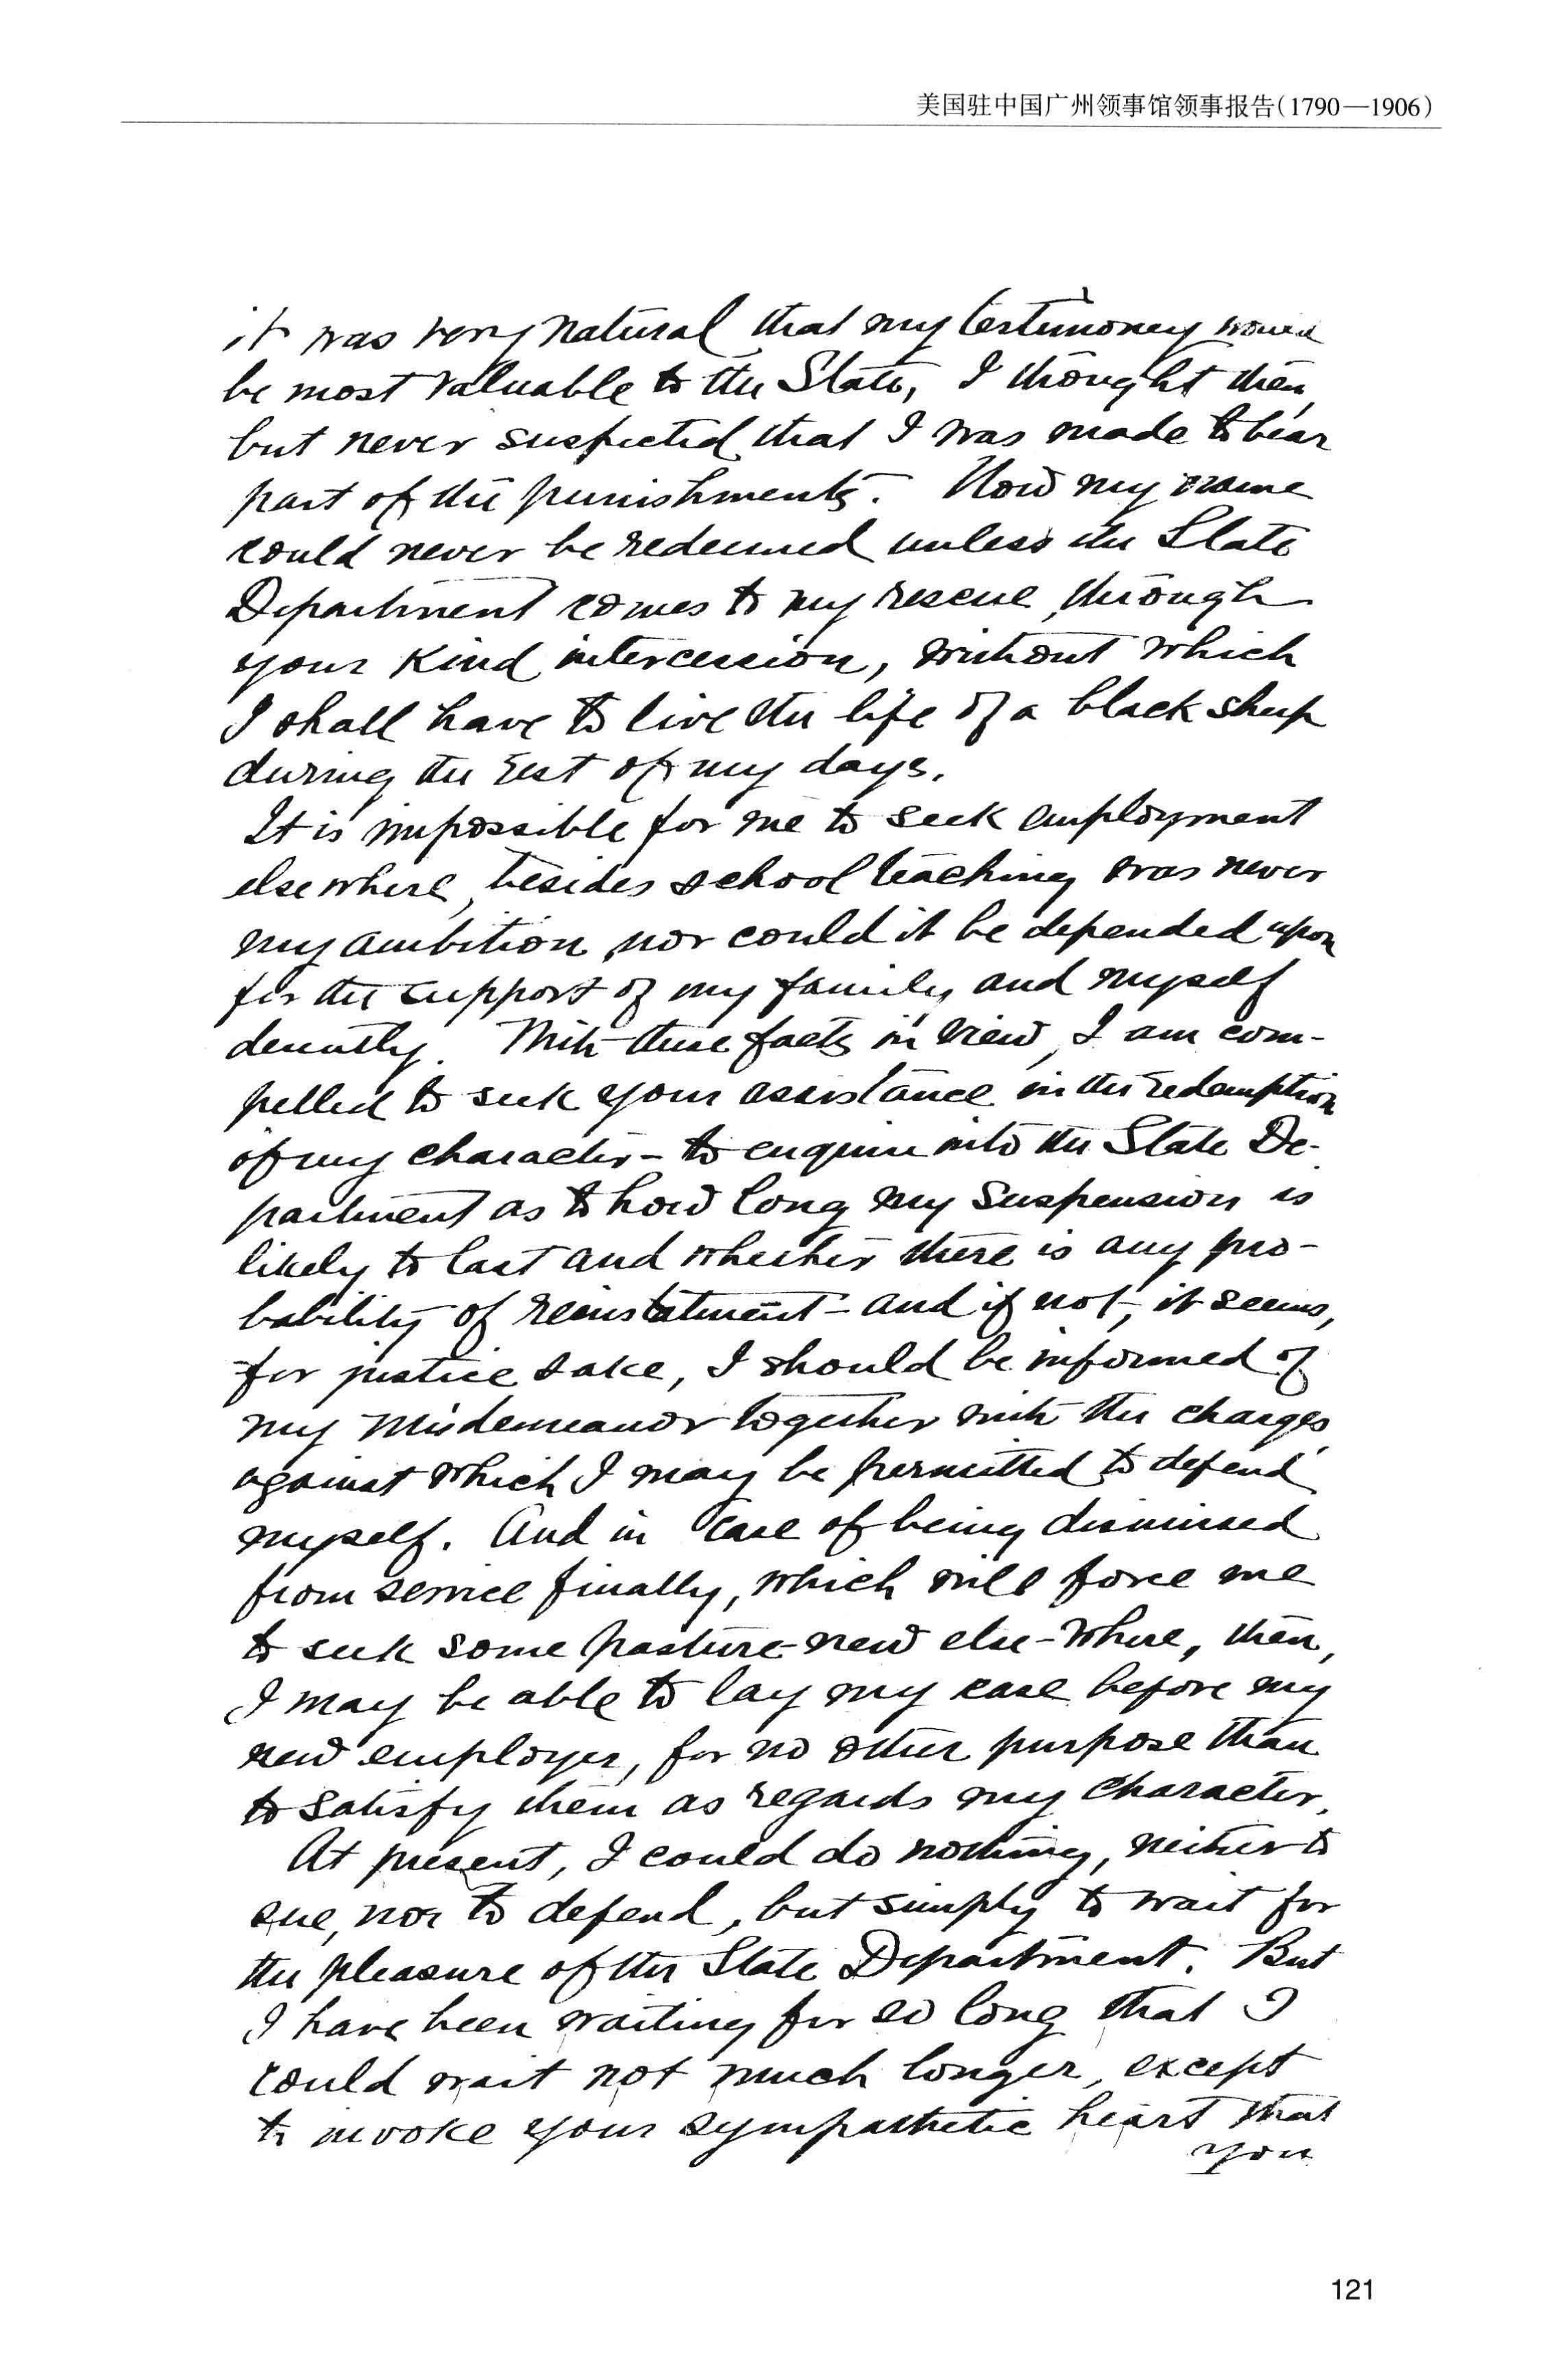 美国驻中国广州领事馆领事报告(1790—1906)
it was very natural that my testimoney would
be most valuable to the State, I thought then,
but never suspected that I was made to bear
part of the punishments. Now my name
could never be redeemed unless the State
Department comes to my rescue, through
your kind intercession, without which
I shall have to live the life of a black sheep
during the rest of my days.
It is impossible for me to seek employment
elsewhere, besides school teaching was never
my ambition, nor could it be depended upon
for the support of my family and myself
decently. With these facts in view, I am com-
pelled to seek your assistance in the redemption
of my character - to enquire into the State De-
partment as to how long my suspension is
likely to last and whether there is any pro-
bability of reinstatment - and if not, it seems,
for justice sake, I should be informed of
my misdemeanor together with the charges
against which I may be permitted to defend
myself. And in case of being dismissed
from service finally, which will force me
to seek some pasture-new else-where, then,
I may be able to lay my case before my
new employer, for no other purpose than
to satisfy them as regards my character.
At present, I could do nothing, neither to
sue, nor to defend, but simply to wait for
the pleasure of the State Department. But
I have been waiting for so long that I
could wait not much longer, except
to invoke your sympathetic heart that
you
121